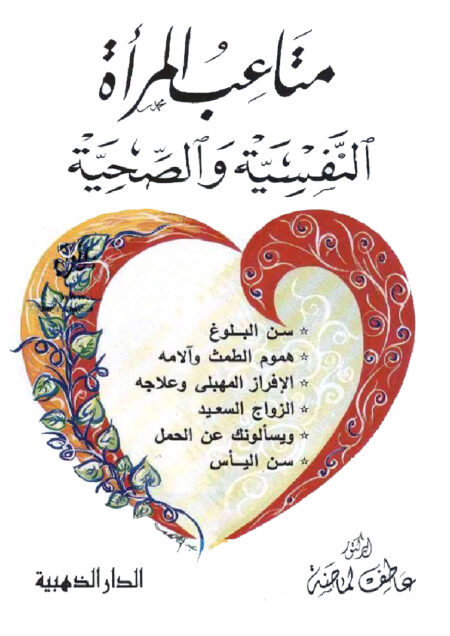 متاعب المرأة
النَّفسِيَّة وَالصِّحِيَّة
☆ سن البلوغ
☆ هموم الطمث وآلامه
☆ الإفراز المهبلى وعلاجه
☆ الزواج السعيد
☆ ويسألونك عن الحمل
☆ سن اليأس
الدكتور
عاطف لماضة
الدار الذهبية